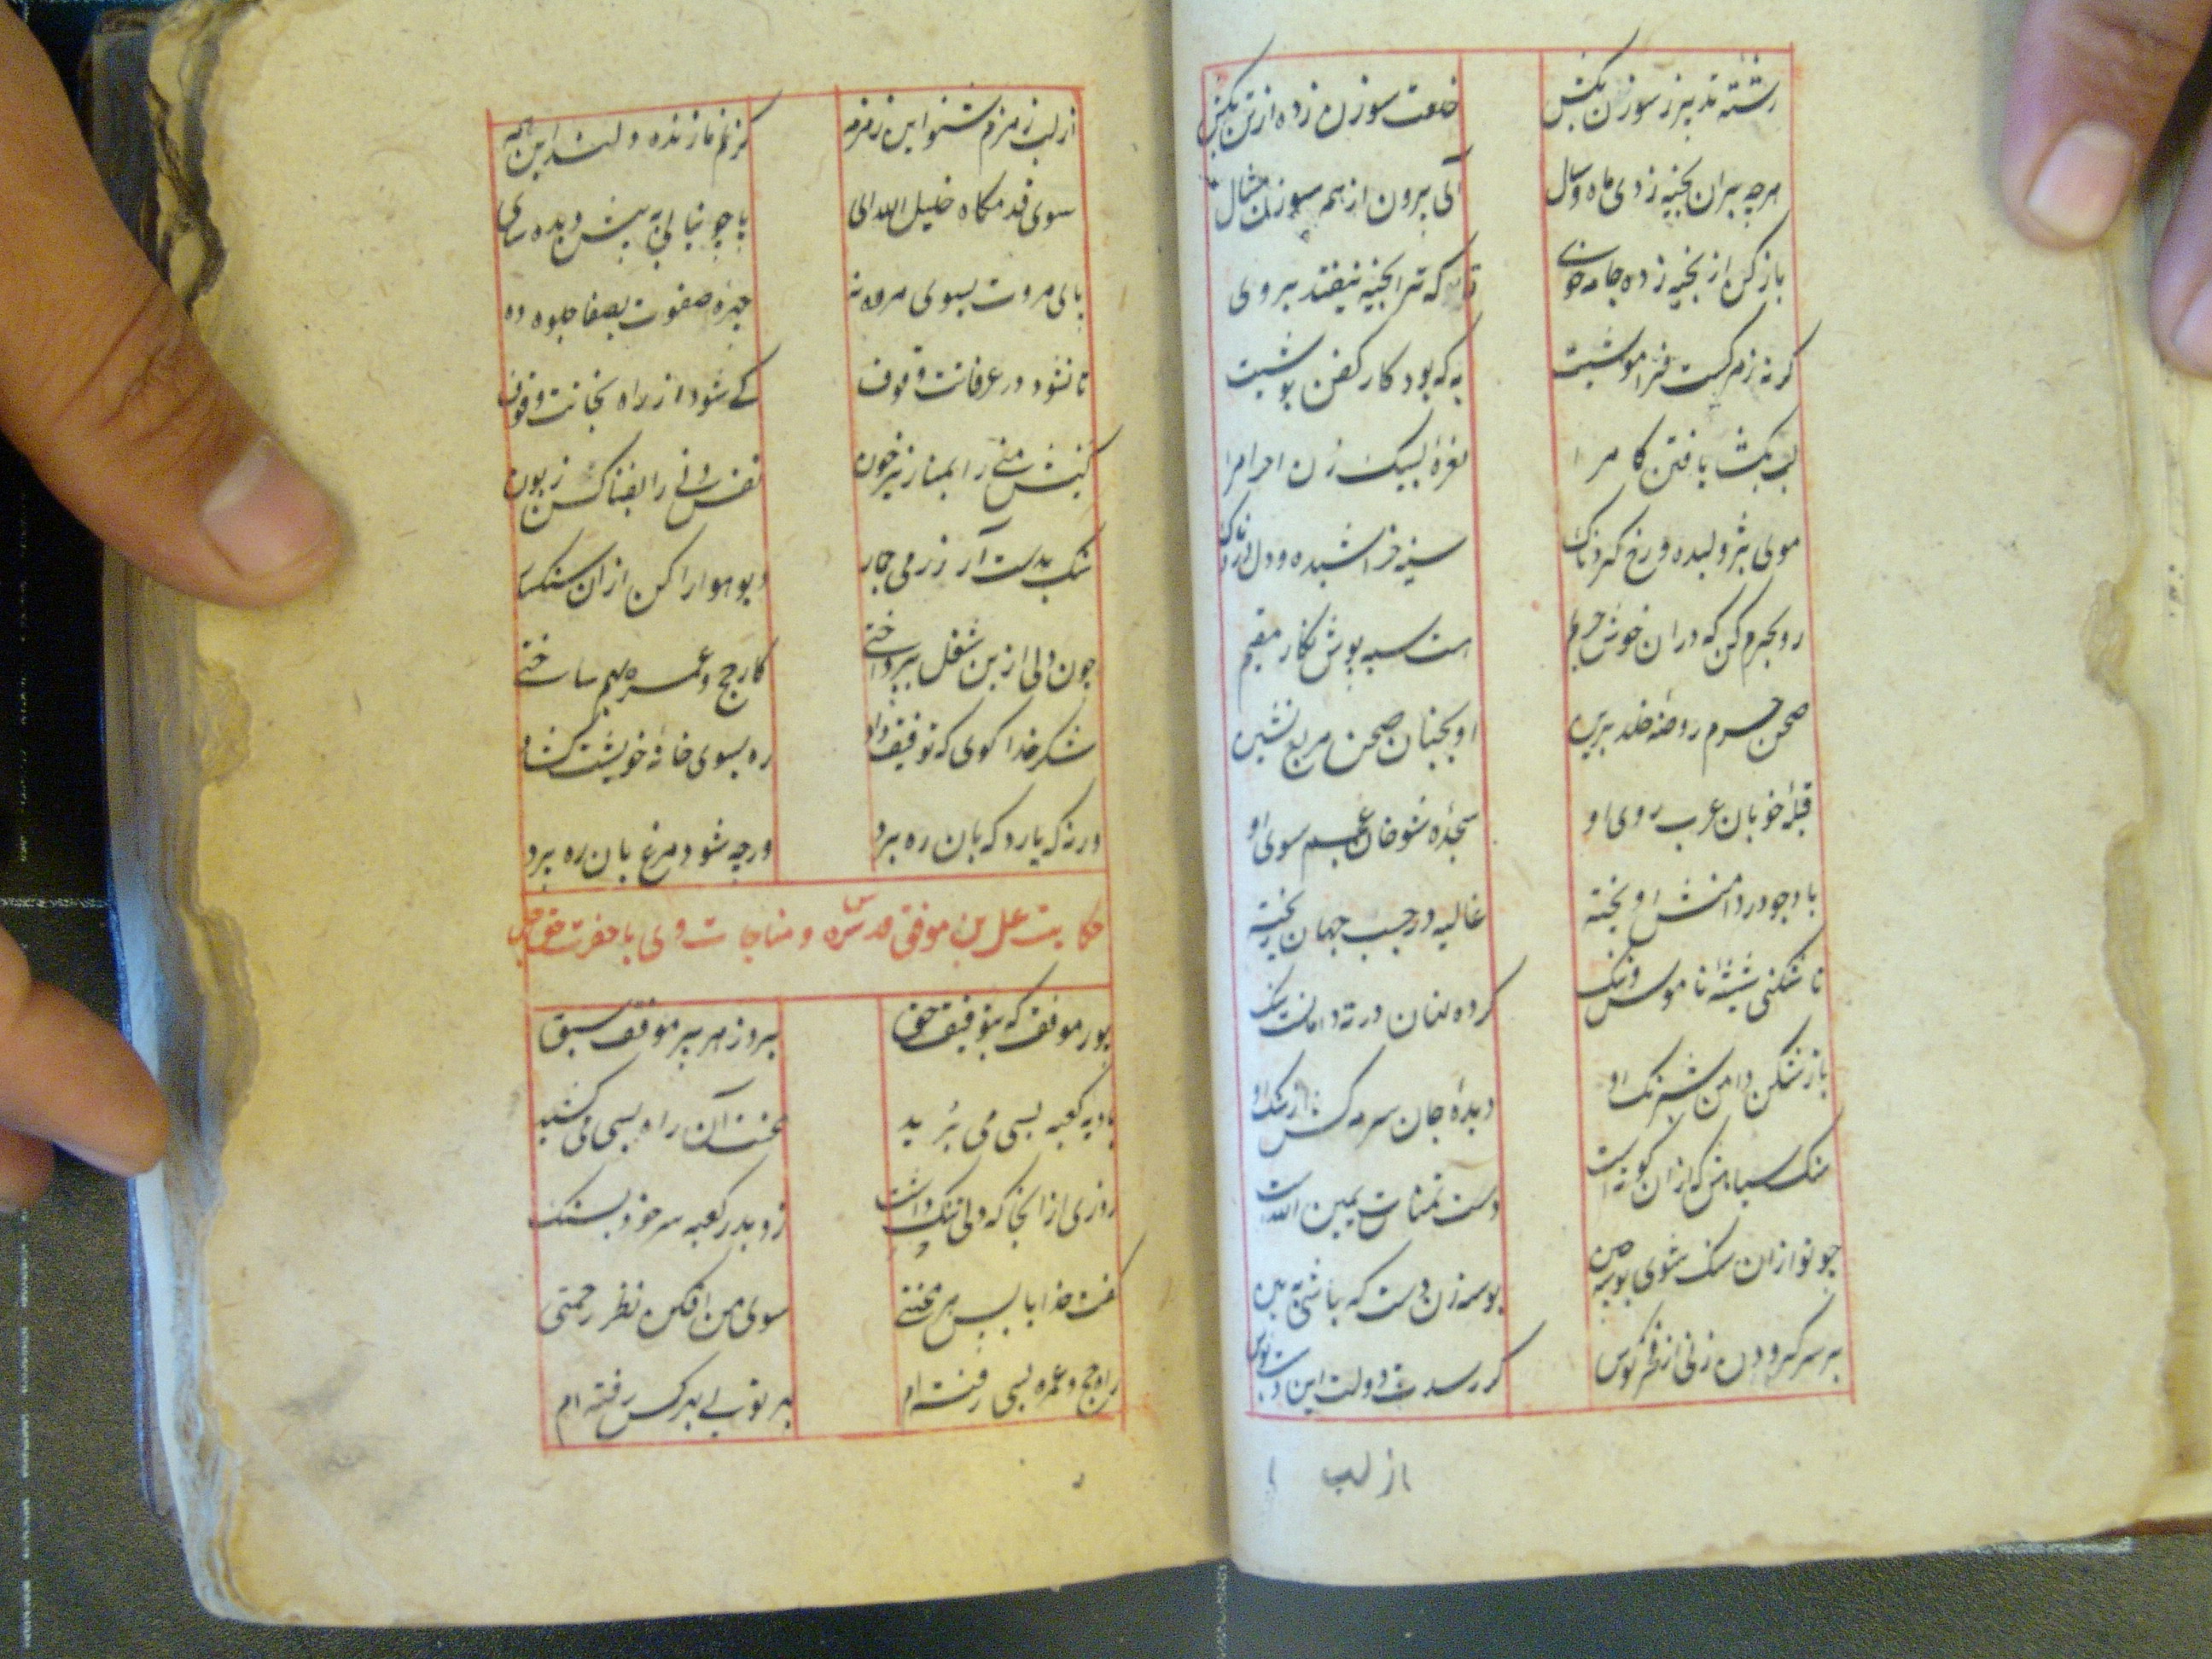 رشته تدبیر ز سوزن بکش خلعت سوزن زده از تن بکش
هرچه بران بخیه زدی ماه و سال آی برون از همه سوزن مثال
باز کن از بخیه زده جامه خوی تا که ترا بخیه نیفتد بروی
گر نه ز مرگست فراموشیت به که بود کار کفن پوشیت
لب بگشا یافتن کام را نعره لبیک زن احرام را
موی پژولیده و رخ گردناک سینه خراشیده و دل دردناک
رو بحرم کن که دران خوش حریم هست سیه پوش نگار مقیم
صحن حرم روضه خلد برین او بچنان صحن مربع نشین
قبله خوبان عرب روی او سجده شوخان عجم سوی او
باد چو در دامنش آویخته غالیه در جیب جهان ریخته
تا شکنی شیشه ناموس و ننگ کرده نهان در ته دامانت سنگ
باز شکن دامن شبرنگ او دیده جان سرمه کش از سنگ او
سنگ سیاهش که ازان کوته است دست تمنات یمین الله است
چو تو ازان سنگ شوی بوسه چین بوسه زن دست که باشی ببین
بر سر گردون زنی از فخر کوس گر رسدت دولت این دست بوس
از لب
از لب زمزم شنو این زمزمه کز نم ما زنده دلند این همه
سوی قدمگاه خلیل الله آی پا چو نیابی پیش دیده سای
پای مروت بسوی مروه نه چهره صفوت بصفا جلوه ده
تا نشود در عرفاتت وقوف کی شود از راه نجاتت وقوف
کبش منی را بمنا ریز خون نفس دنی را بفنا کن زبون
سنگ بدست آر ز رمی جمار دیو هوا را کن ازان سنگسار
چون دل ازین شغل بپرداختی کار حج و عمره بهم ساختی
شکر خدا گوی که توفیق داد ره بسوی خانه خویشت گشاد
ورنه که یارد که بان ره برد ورچه شود مرغ بان ره برد
حکایت علی بن موفق قدس سره و مناجات وی با حضرت حق
پور موفق که بتوفیق حق برد ز هر پیر موفق سبق
بادیه کعبه بسی می برید محنت آن راه بسی می کشید
روزی ازانجا که دلی تنگ داشت زد بدر کعبه سر خود بسنگ
گفت خدایا پس هر محنتی سوی من افکن نظر رحمتی
راه حج و عمره بسی رفته ام بر تو بی برکس رفته ام